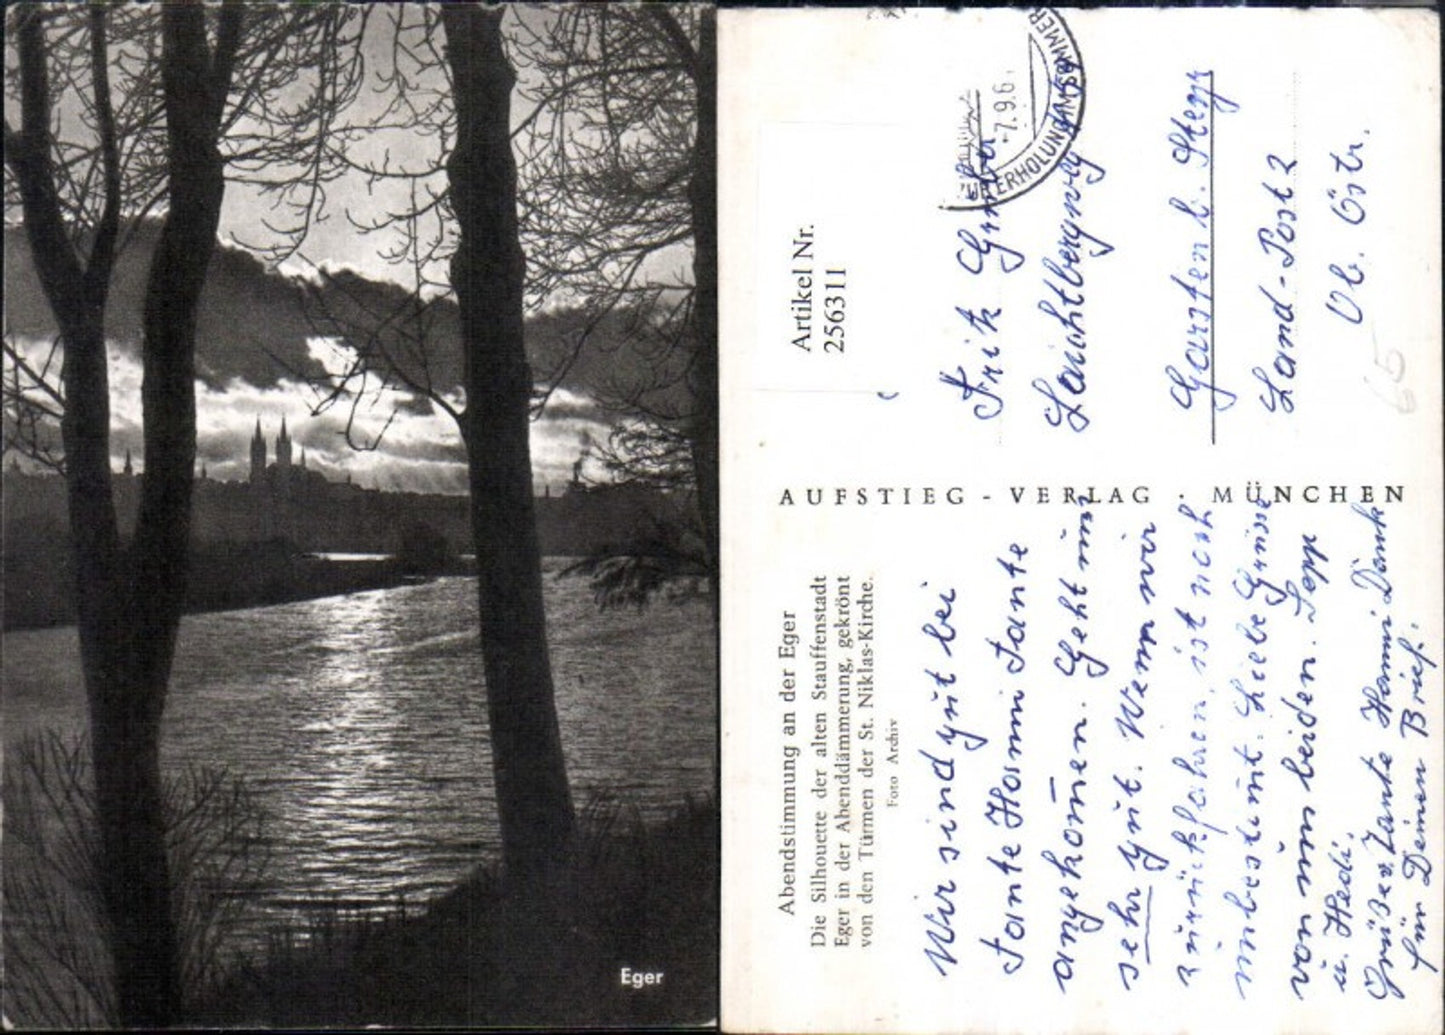 Eger
Artikel Nr.
256311
Abendstimmung an der Eger
Die Silhouette der alten Stauffenstadt
Eger in der Abenddämmerung, gekrönt
von den Türmen der St. Niklas-Kirche.
Foto Archiv
AUFSTIEG - VERLAG · MÜNCHEN
-7.9.6
ERHOLUNG
Fritz Gruber
Laichtbergweg
Garsten b. Steyr
Land-Post 2
Ob. Östr.
65
Wir sind gut bei
Tante Hanni Tante
angekommen. Geht uns
sehr gut. Wenn wir
zurückfahren, ist noch
unbestimt. Liebe Grüsse
von uns beiden. Sepp
u. Hedi.
Grüße v. Tante Hanni Dank
für Deinen Brief.